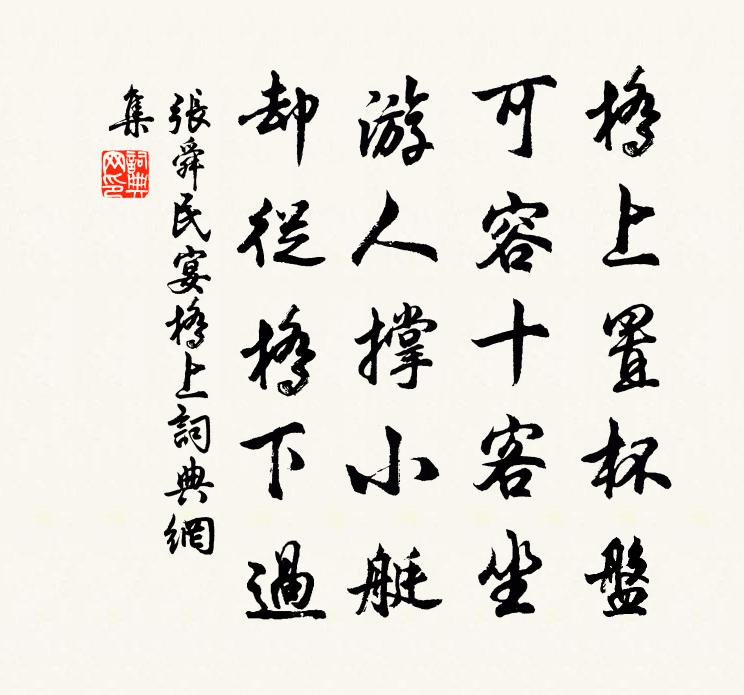 橋上置杯盤
可容十客坐
游人撑小艇
却從橋下過
張舜民宴橋上詞典網
集
詞典
网印